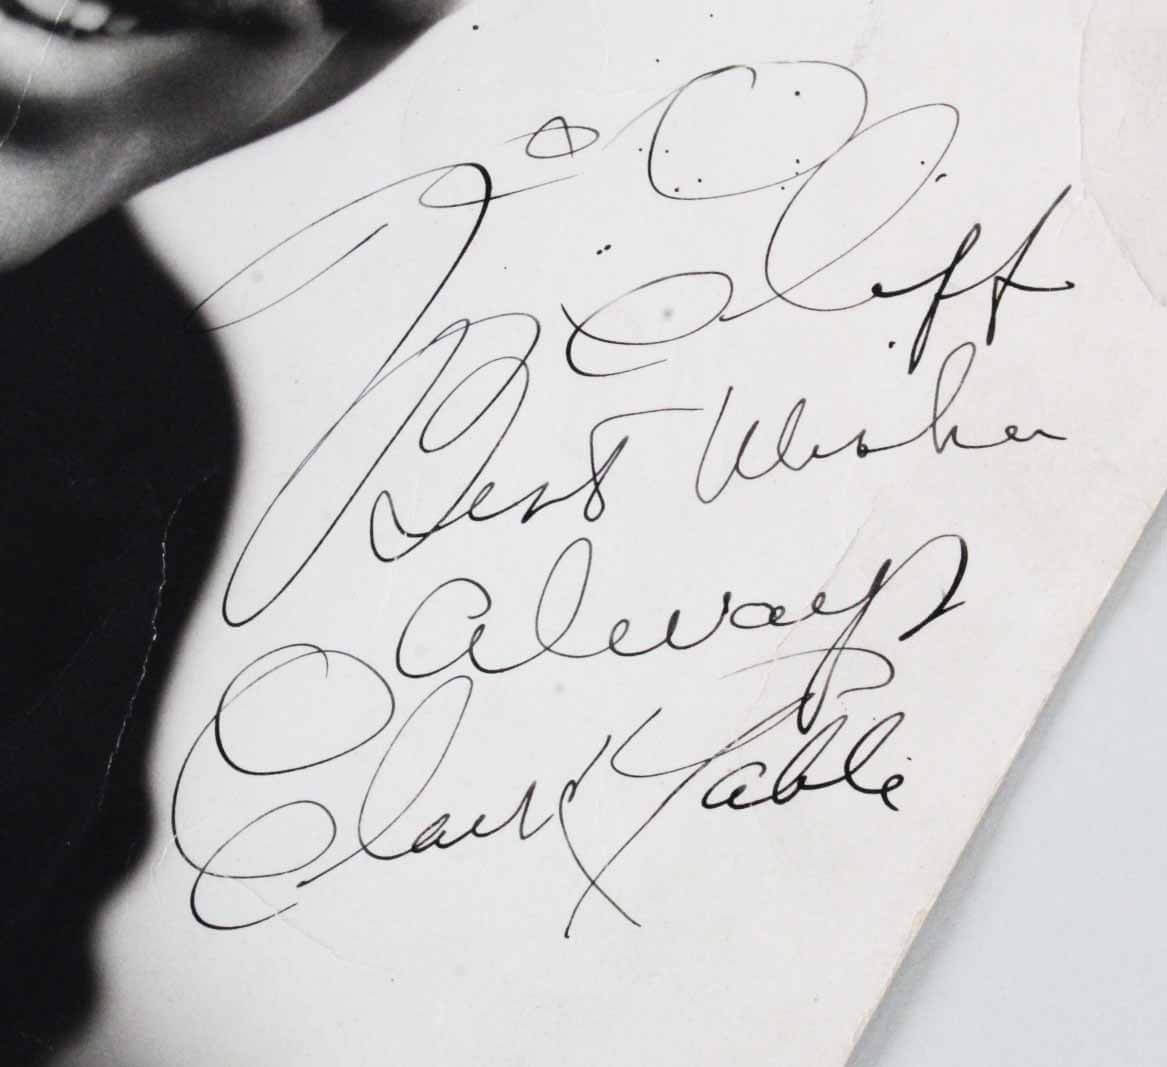 To Cliff
Best Wishes
Always
Clark Gable